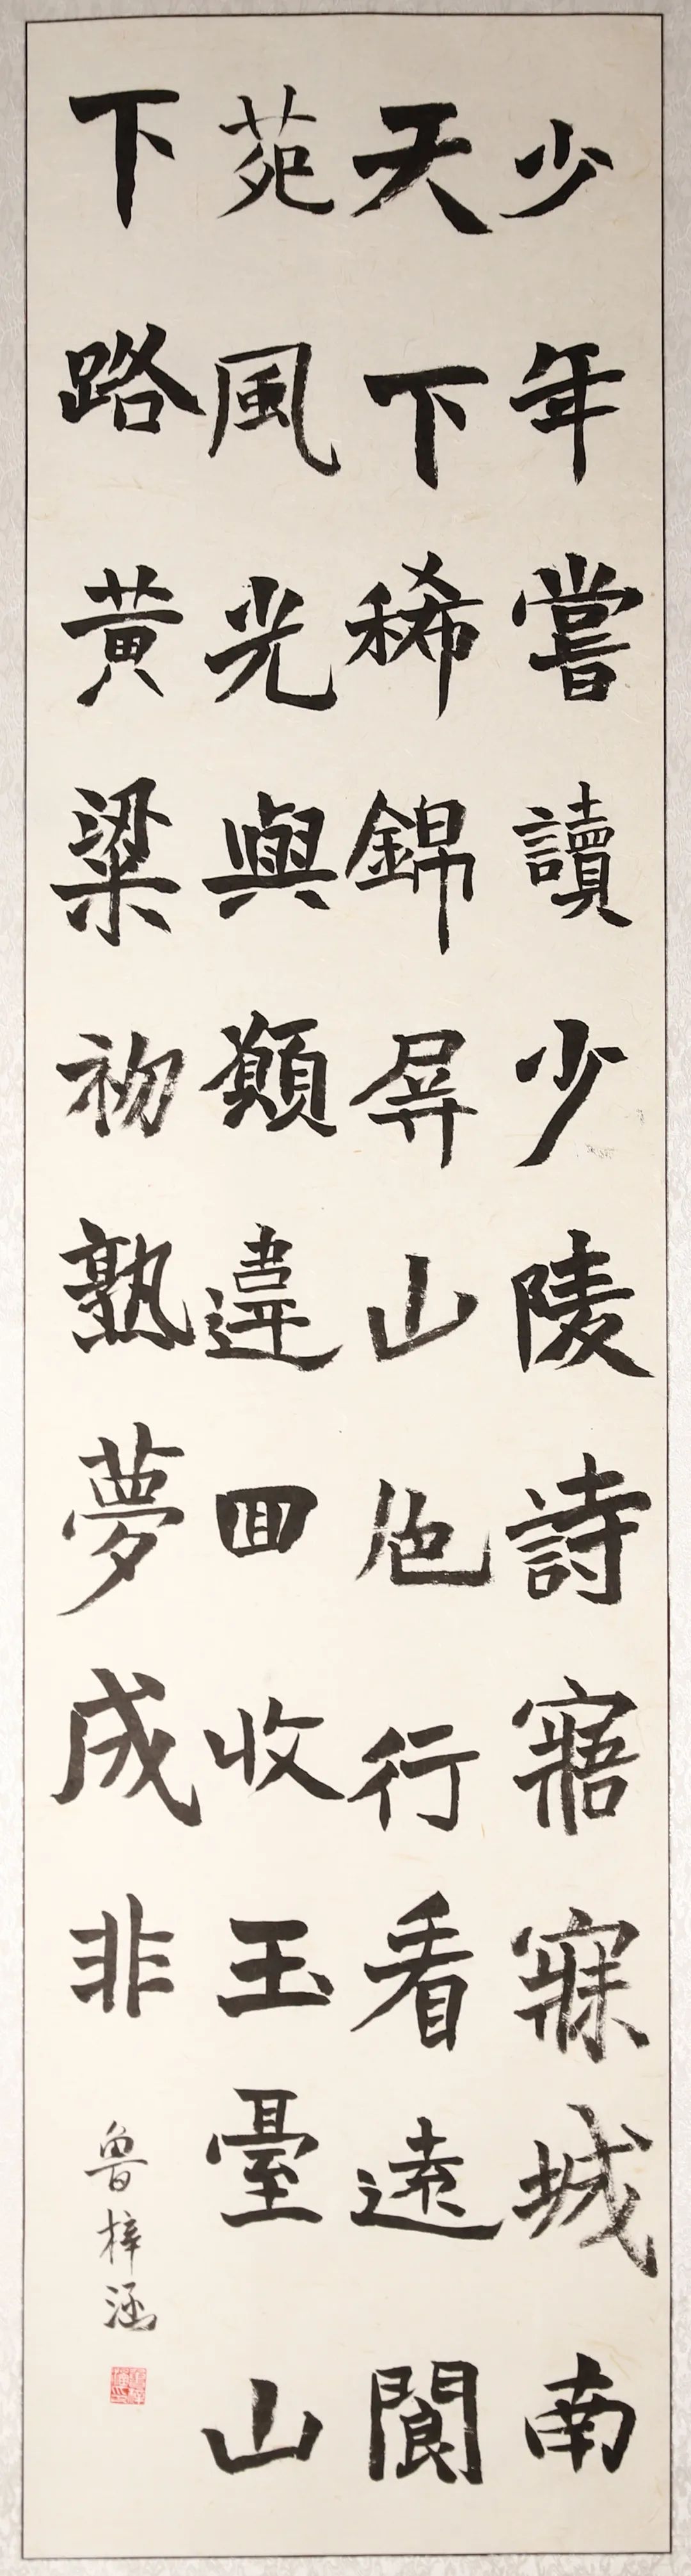 少年嘗讀少陵詩寤寐城南
天下稀錦屏山色行看遠閬
苑風光與願違回收玉臺山
下路黃粱初熟夢成非
魯梓涵